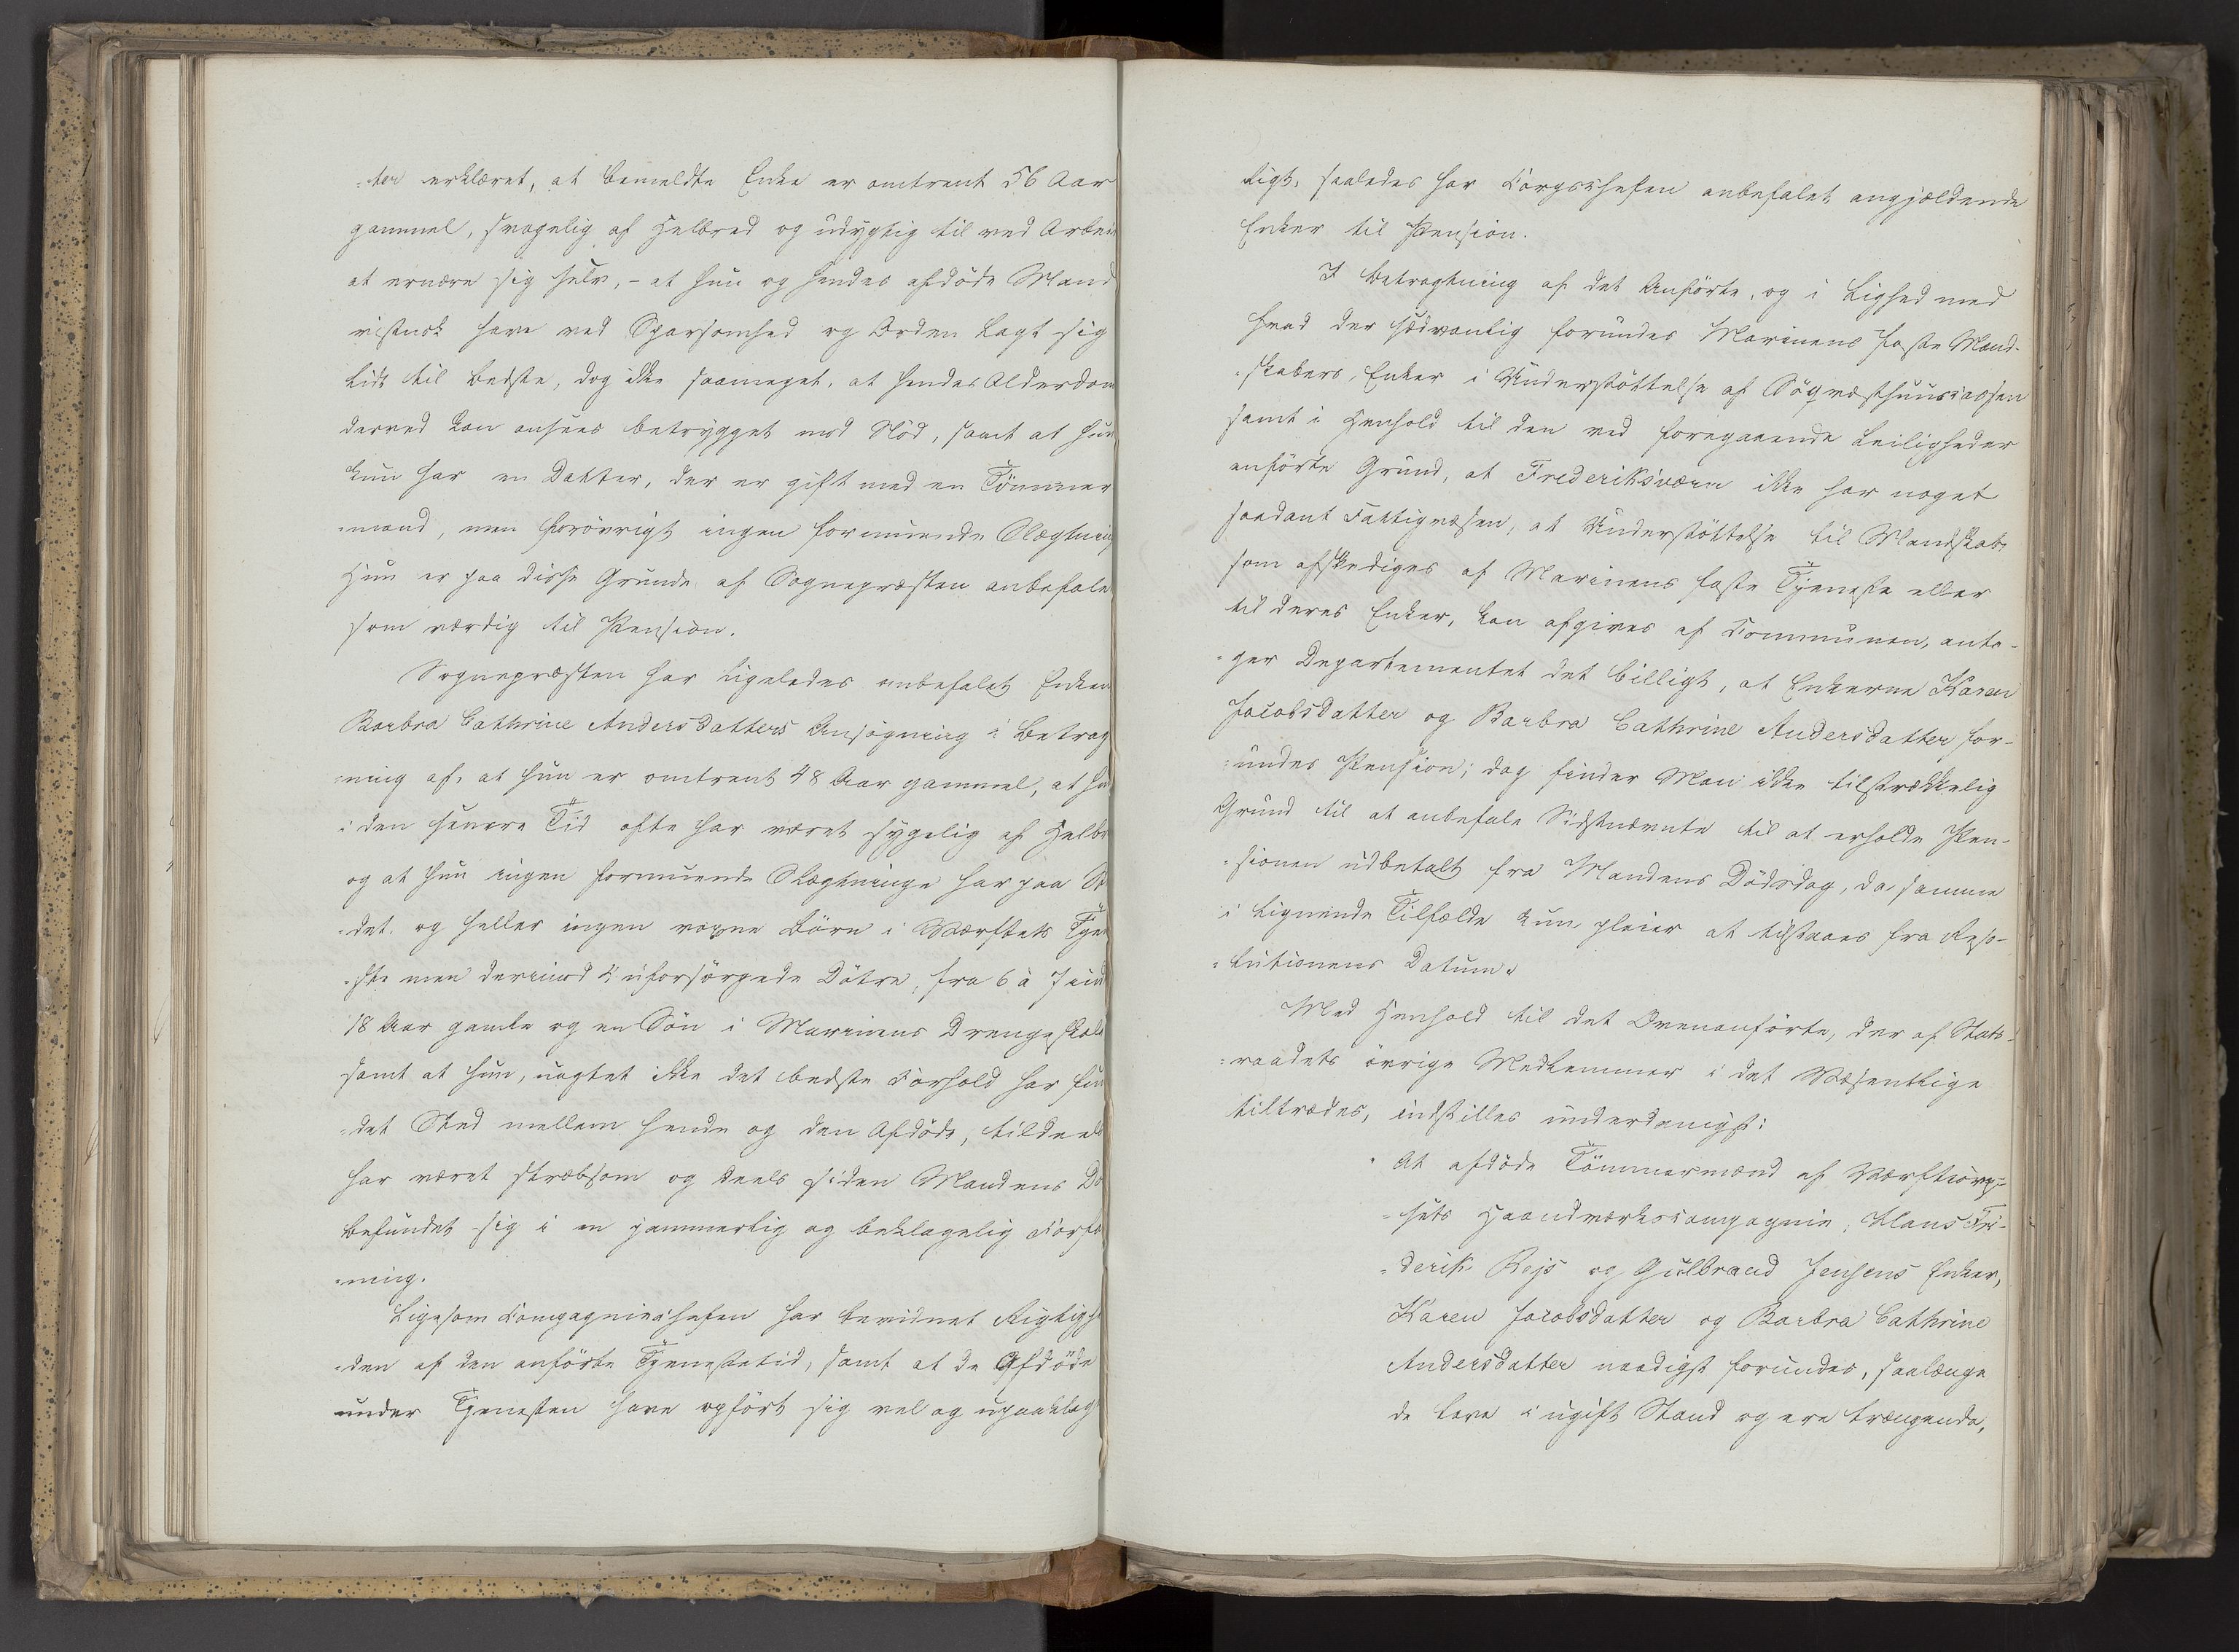 =ter erklæret, at bemeldte Enke er omtrent 56 Aar
gammel, svagelig af Helbred og udygtig til ved Arbei
at ernære sig selv, - at hun og hendes afdöde Mand
vistnok have ved Sparsomhed og Orden lagt sig
Lidt til bedste, dog ikke saameget, at hendes Alderdom
derved kan ansees betrygget mod Nöd, samt at hun
kun har en Datter, der er gift med en Tömmer
=mand, men forövrigt ingen formuende Slægtning
Hun er paa disse Grunde af Sognepræsten anbefale
som værdig til Pension.
Sognepræsten har ligeledes anbefalet Enken
Barbra Cathrine Andersdatters Ansögning i Betrag
=ning af, at hun er omtrent 48 Aar gammel, at hun
i den senere Tid ofte har været sygelig af Helbr
og at hun ingen formuende Slægtninge har paa St
=det og heller ingen voxne Börn i Værftets Tjen
=ste men derimod 4 uforsörgede Dötre, fra 6 à 7 ind
18 Aar gamle og en Sön i Marinens Drengeskole
samt at hun, uagtet ikke det bedste Forhold har fun
=det Sted mellem hende og den Afdöde, tildeels
har været stræbsom og deels siden Mandens Dö
befundet sig i en jammerlig og beklagelig Forfa
=ning.
Ligesom Compagniechefen har bevidnet Rigtigh
=den af den anförte Tjenestetid, samt at de Afdöde
under Tjenesten have opfört sig vel og upaaklag
ligt, saaledes har Corpschefen anbefalet angjældende
Enker til Pension.
I Betragtning af det Anförte, og i Lighed med
hvad der sædvanlig forundes Marinens faste Mand-
=skabers Enker i Understöttelse af Söqvæsthuuscassen
samt i Henhold til den ved foregaaende Leiligheder
anförte Grund, at Frederiksværn ikke har noget
saadant Fattigvæsen, at Understöttelse til Mandskab
som afskediges af Marinens faste Tjeneste eller
til deres Enker, kan afgives af Communen, anta-
=ger Departementet det billigt, at Enkerne Karen
Jacobsdatter og Barbra Cathrine Andersdatter for-
=undes Pension; dog finder Man ikke tilstrækkelig
Grund til at anbefale Sidstnævnte til at erholde Pen-
=sionen udbetalt fra Mandens Dödsdag, da samme
i lignende Tilfælde kun pleier at tilstaaes fra Reso-
=lutionens Datum.
Med Henhold til det Ovenanförte, der af Stats-
=raadets övrige Medlemmer i det Væsentlige
tiltrædes, indstilles underdanigst:
At afdöde Tömmermænd af Værftscorp-
=sets Haandværkscompagnie, Claus Fri-
=derik Rejs og Gulbrand Jensens Enker,
Karen Jacobsdatter og Barbra Cathrine
Andersdatter naadigst forundes, saalænge
de leve i ugift Stand og ere trængende,